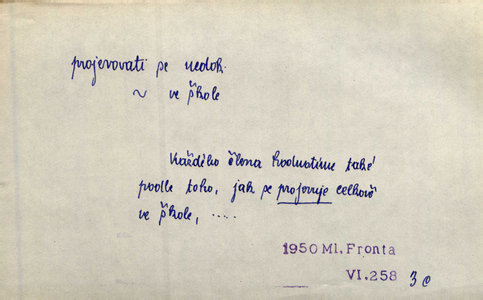 projevovati se nedok.
~ ve škole
Každého člena hodnotíme také
podle toho, jak se projevuje celkově
ve škole, ....
1950 Ml. Fronta
VI.258 3c